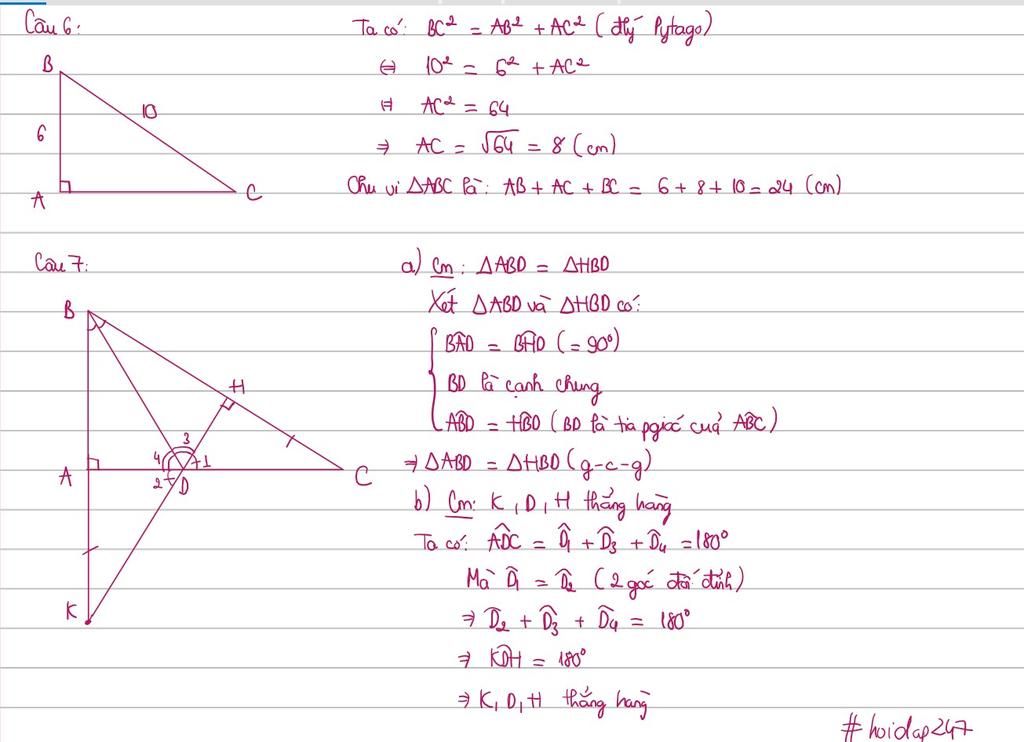 Câu 6:
B
10
6
A
C
Ta có: BC² = AB² + AC² (đlý Pytago)
⇔ 10² = 6² + AC²
⇔ AC² = 64
⇒ AC = √64 = 8 (cm)
Chu vi ΔABC là: AB + AC + BC = 6 + 8 + 10 = 24 (cm)
Câu 7:
B
H
3
4
1
A
2
D
C
K
a) Cm: ΔABD = ΔHBD
Xét ΔABD và ΔHBD có:
B̂AD = B̂HD (= 90°)
BD là cạnh chung
ÂBD = ĤBD (BD là tia pgiác của ÂBC)
⇒ ΔABD = ΔHBD (g-c-g)
b) Cm: K, D, H thẳng hàng
Ta có: ÂDC = D̂₁ + D̂₃ + D̂₄ = 180°
Mà D̂₁ = D̂₂ (2 góc đối đỉnh)
⇒ D̂₂ + D̂₃ + D̂₄ = 180°
⇒ K̂DH = 180°
⇒ K, D, H thẳng hàng
#hoidap247